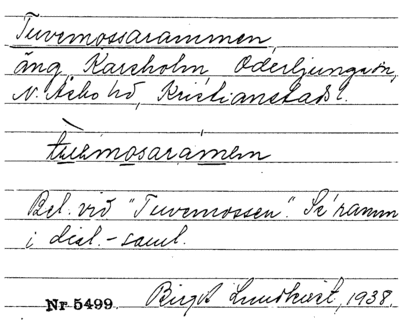 Tuvemossarammen,
äng, Karsholm, Oderljunga sn,
N. Åsbo hd, Kristianstads l.
tuvemosaramen
Bel. vid "Tuvemossen". Se ramm
i dial.-saml.
Nr 5499. Birgit Lundkvist, 1938.